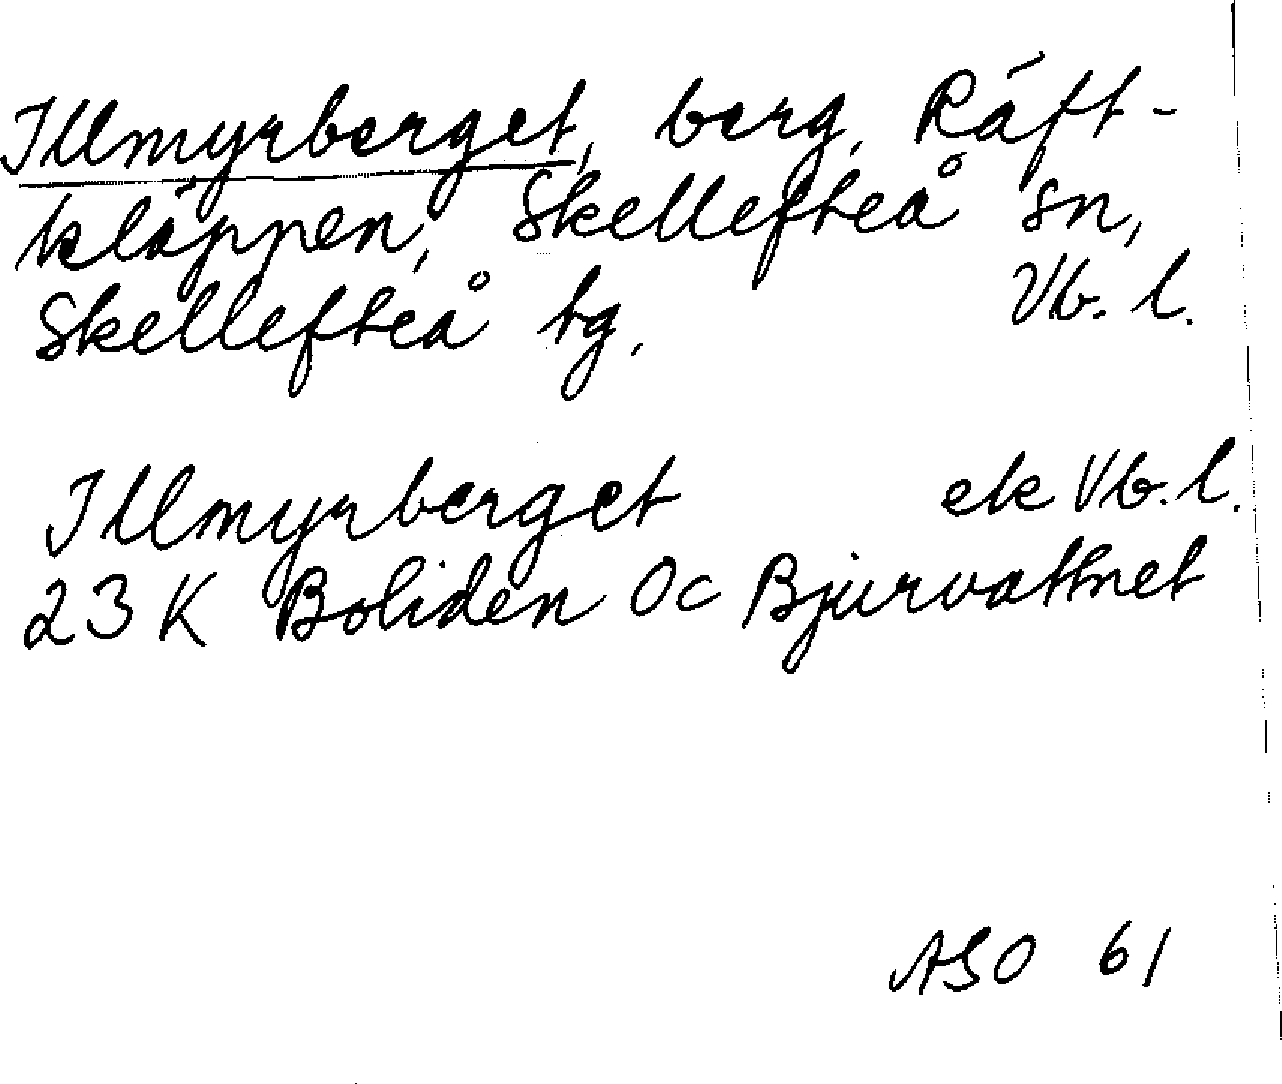 Illmyrberget, berg, Räft-
kläppen, Skellefteå sn,
Skellefteå tg. Vb. l.
Illmyrberget ek Vb. l.
23 K Boliden Oc Bjurvattnet
ASO 61